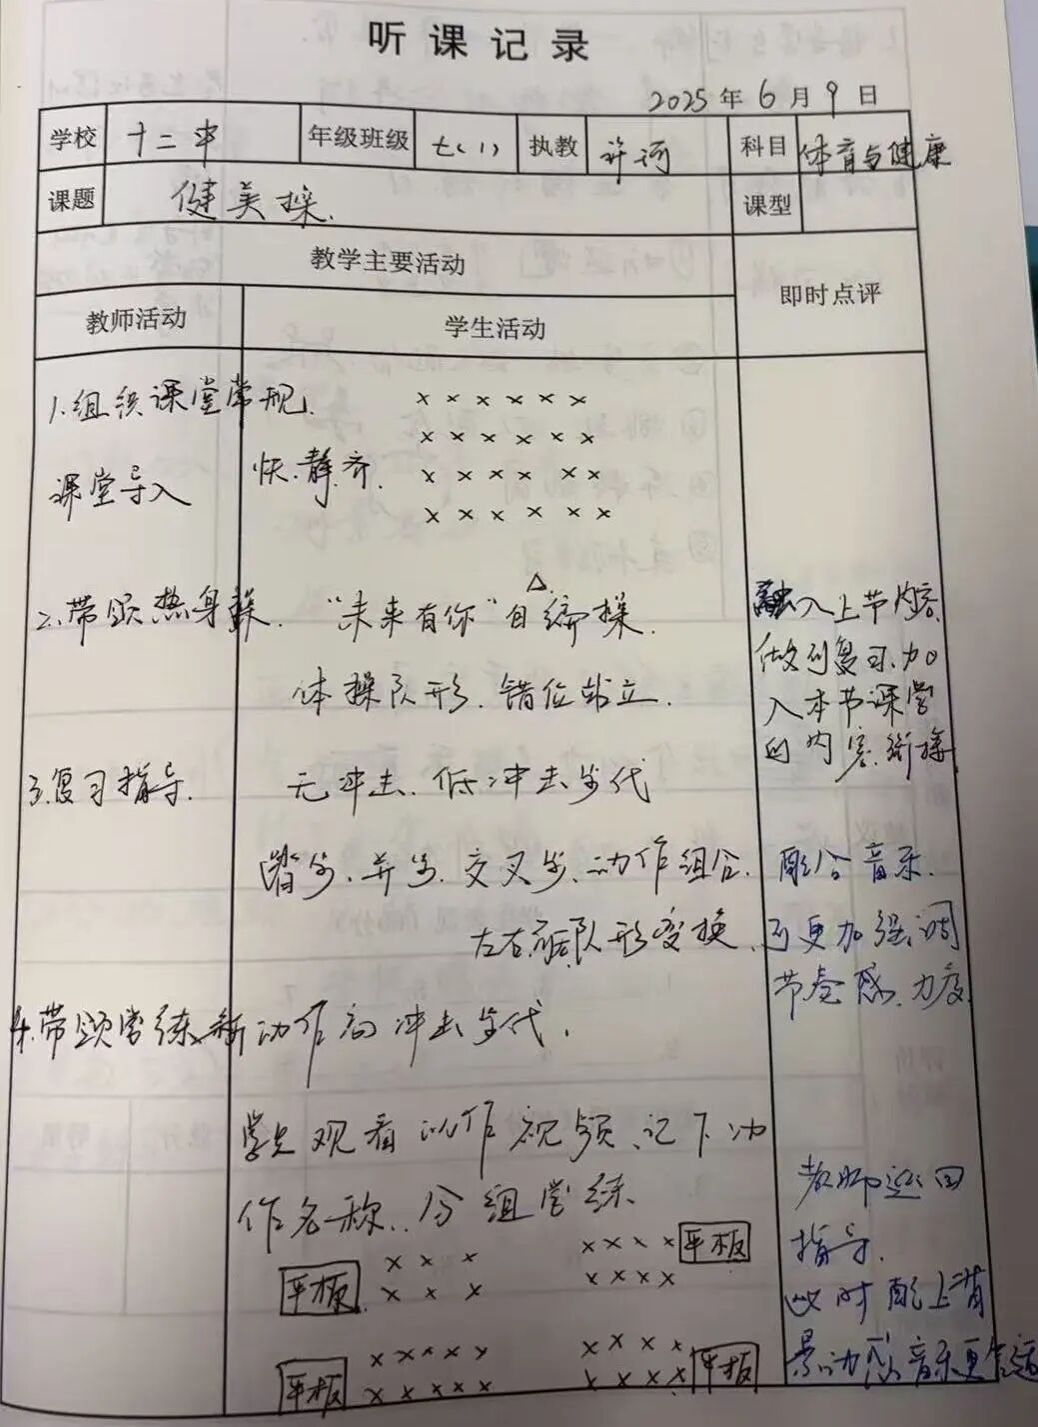 听课记录
2025年6月9日
学校 十二中 年级班级 七(1) 执教 许河 科目 体育与健康
课题 健美操. 课型
教学主要活动
即时点评
教师活动 学生活动
1.组织课堂常规.
× × × × × ×
× × × × × ×
课堂导入 快.静.齐.
× × × × × ×
× × × × × ×
△
2.带领热身操. "未来有你"自编操.
体操队形.错位站立.
融入上节内容.
做到复习.加
入本节课堂
的内容衔接
3.复习指导. 无冲击.低冲击步伐
踏步.并步.交叉步.动作组合.
左右 队形变换.
配合音乐.
可更加强调
节奏感.力度
4.带领学练新动作高冲击步伐.
学生观看动作视频.记下动
作名称.分组学练
平板 × × × × × × × 平板
× × × × × × ×
平板 × × × × × × × × × 平板
× × × × × × × × ×
教师巡回
指导.
此时配上背
景动感音乐更合适